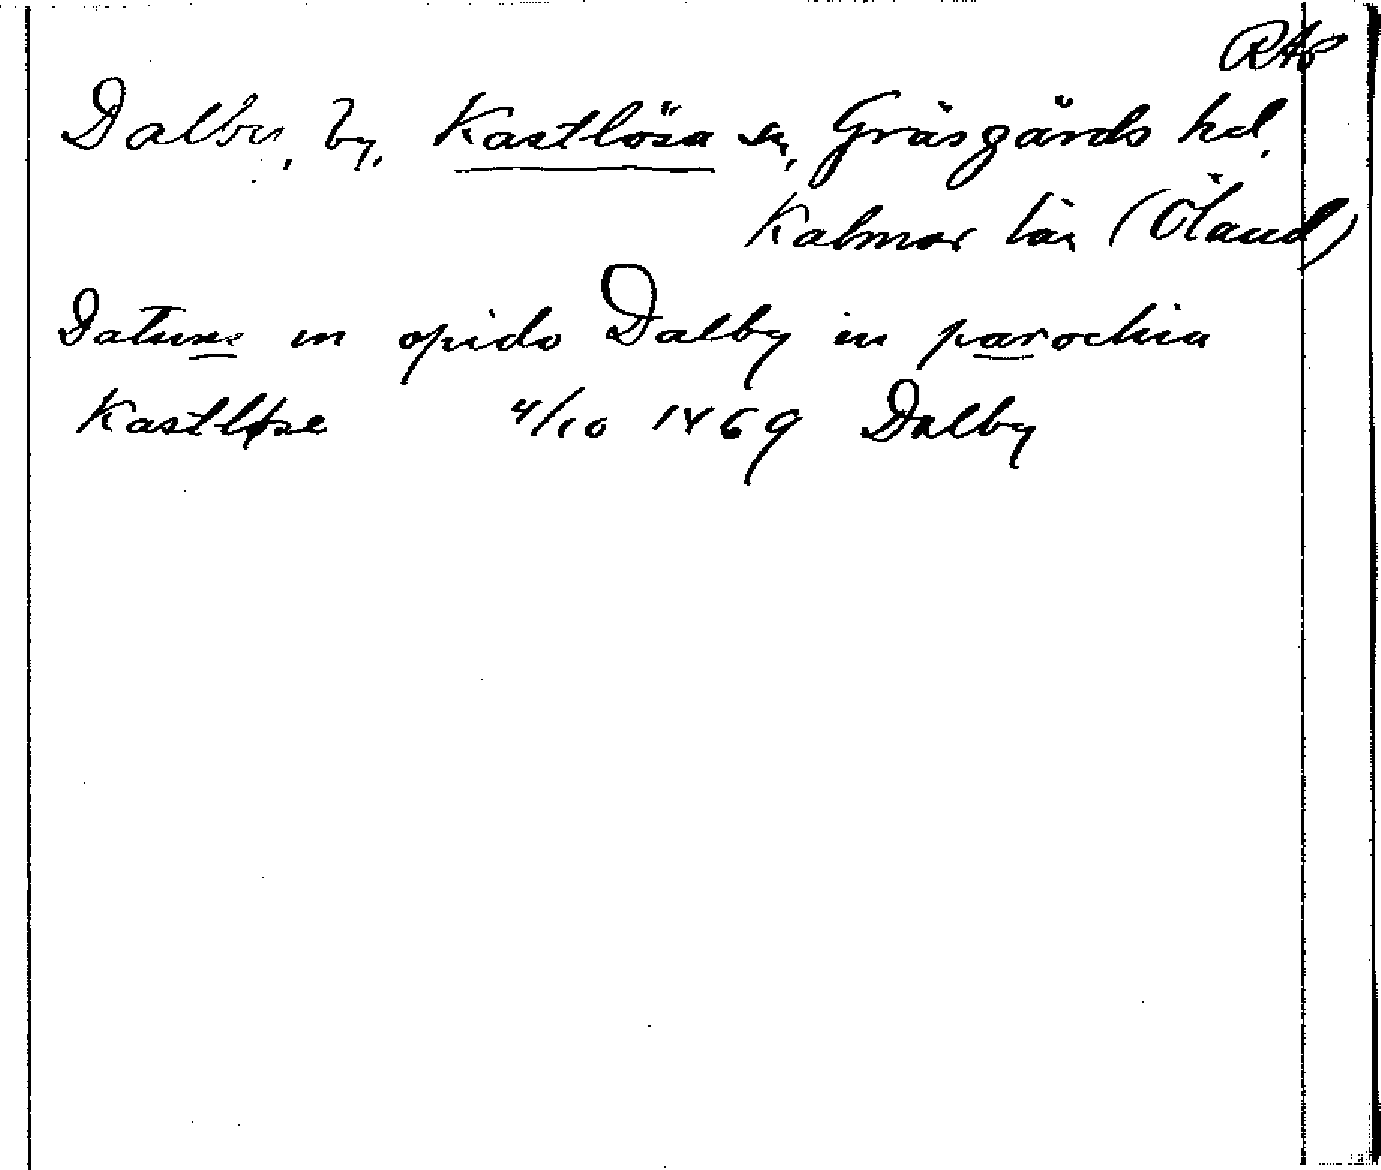 RAp
Dalby, by, Kastlösa sn, Gräsgårds hd.
Kalmar län (Öland)
Datum in opido Dalby in parochia
Kastløse 4/10 1469 Dalby